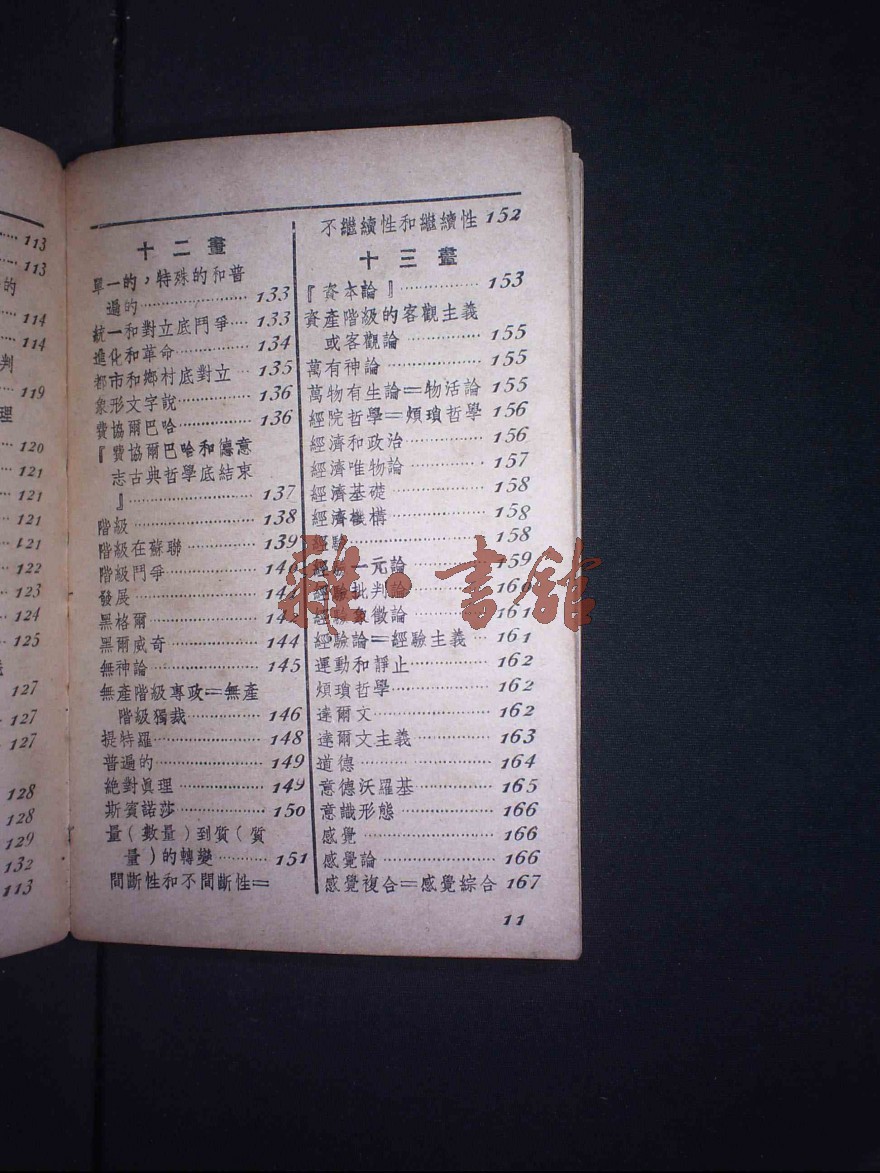 113
113
的
114
114
判
119
理
120
121
121
121
121
122
123
124
125
127
127
127
128
128
129
132
113
十二畫
單一的，特殊的和普
遍的………………133
統一和對立底鬥爭…133
進化和革命…………134
都市和鄉村底對立…135
象形文字說…………136
費協爾巴哈…………136
『費協爾巴哈和德意
志古典哲學底結束
』……………………137
階級…………………138
階級在蘇聯…………139
階級鬥爭……………140
發展…………………
黑格爾………………
黑爾威奇……………144
無神論………………145
無產階級專政＝無產
階級獨裁……………146
提特羅………………148
普遍的………………149
絶對眞理……………149
斯賓諾莎……………150
量（數量）到質（質
量）的轉變…………151
間斷性和不間斷性＝
不繼續性和繼續性 152
十三畫
『資本論』…………153
資產階級的客觀主義
或客觀論……………155
萬有神論……………155
萬物有生論＝物活論 155
經院哲學＝煩瑣哲學 156
經濟和政治…………156
經濟唯物論…………157
經濟基礎……………158
經濟機構……………158
經驗…………………158
經驗一元論…………159
經驗批判論…………160
經驗象徵論…………161
經驗論＝經驗主義…161
運動和靜止…………162
煩瑣哲學……………162
達爾文………………162
達爾文主義…………163
道德…………………164
意德沃羅基…………165
意識形態……………166
感覺…………………166
感覺論………………166
感覺複合＝感覺綜合 167
11
雜·書館